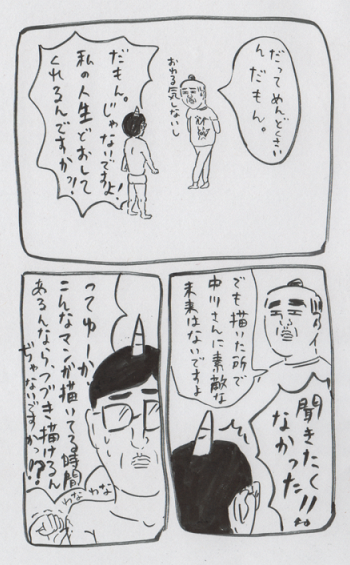 だってめんどくさい
んだもん。
おわる気しないし
だもん。
じゃないですよ!
私の人生どおして
くれるんですかっ!
でも描いた所で
中川さんに素敵な
未来はないですよ
聞きたく
なかった!!
ってゆーか、
こんなマンガ描いてる時間
あるんならつづき描けるん
ぢゃないですかっ!?
わな
わな
わな